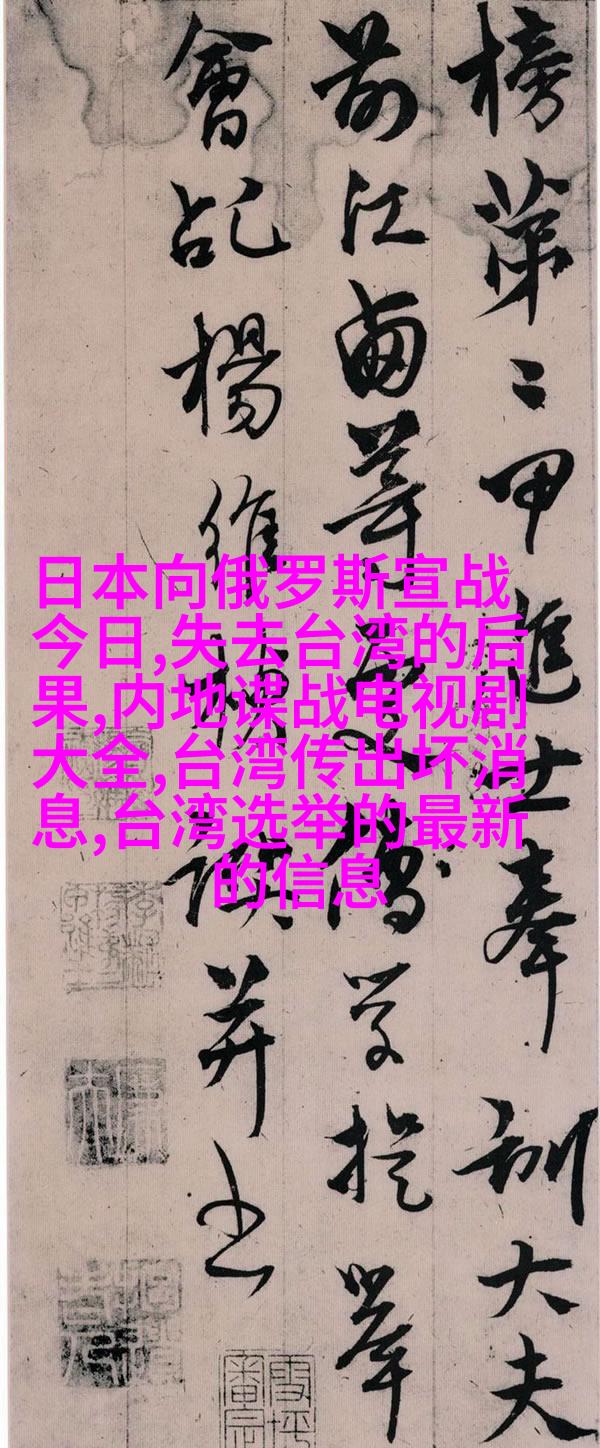 榜第二甲進士奉訓大夫
前江西等處儒學提舉
會稽楊維楨譔并書
日本向俄罗斯宣战
今日,失去台湾的后
果,内地谍战电视剧
大全,台湾传出坏消
息,台湾选举的最新
的信息